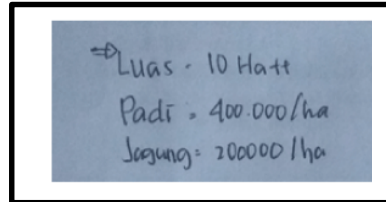 ⇒Luas = 10 Hatt
Padi = 400.000/ha
Jagung = 200000/ha